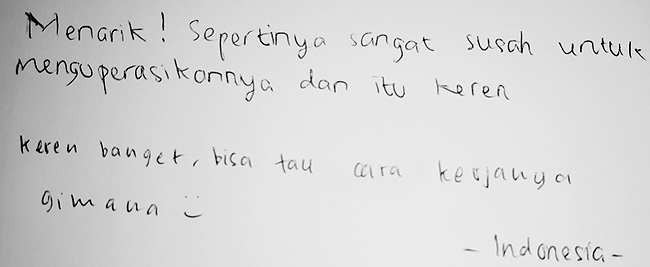 Menarik! Sepertinya sangat susah untuk
menguperasikonnya dan itu keren
keren banget, bisa tau cara kerjanya
gimana :)
- Indonesia -